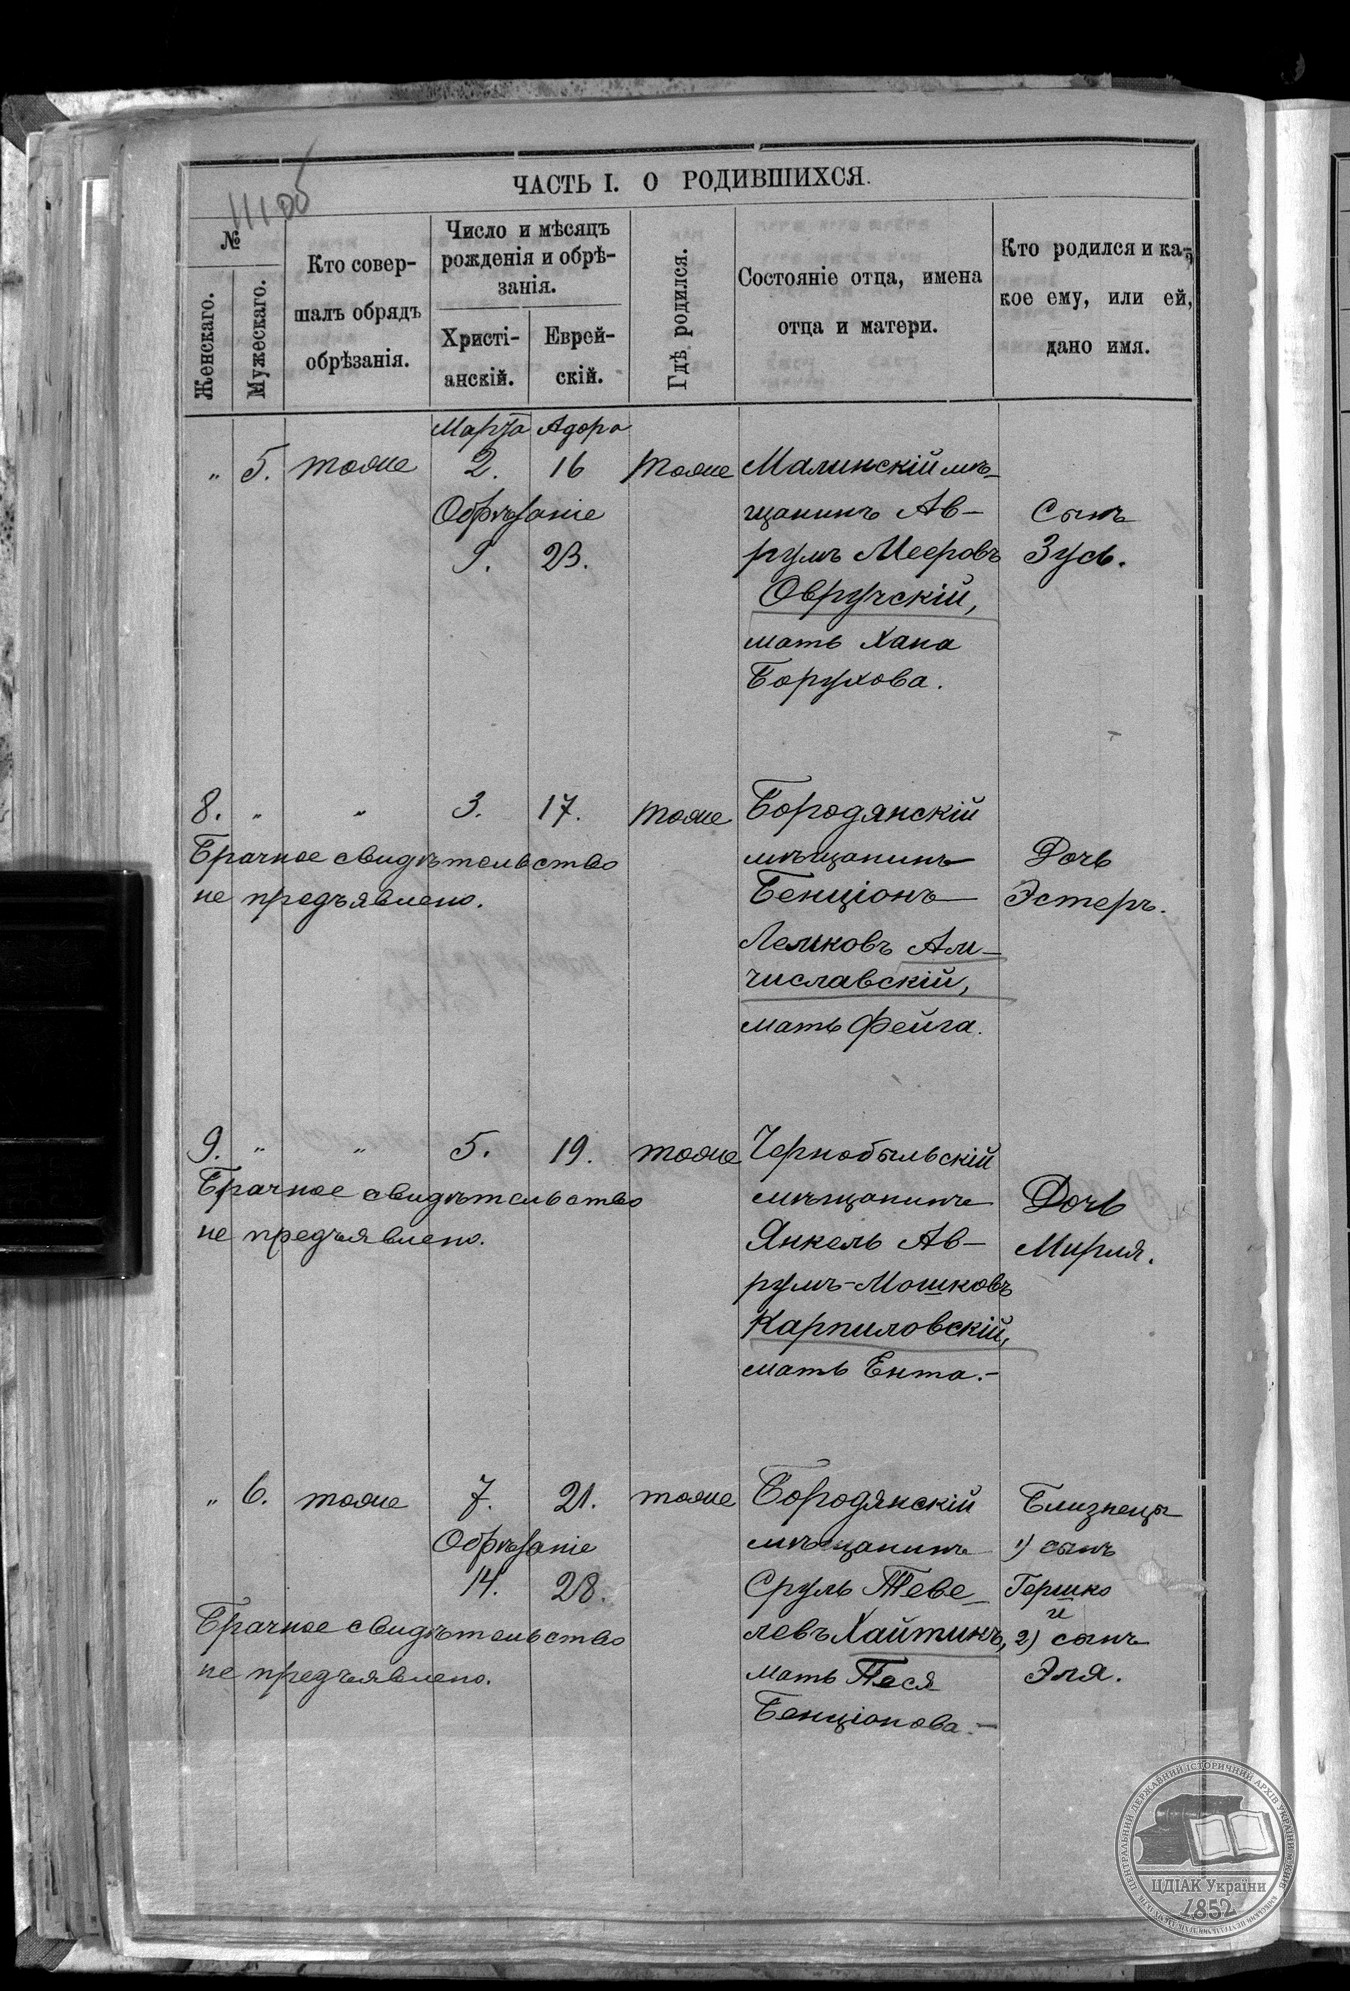 111 об
ЧАСТЬ I. О РОДИВШИХСЯ.
№
Женскаго.
Мужескаго.
Кто совер-
шалъ обрядъ
обрѣзанія.
Число и мѣсяцъ
рожденія и обрѣ-
занія.
Христі-
анскій.
Еврей-
скій.
Гдѣ родился.
Состояніе отца, имена
отца и матери.
Кто родился и ка-
кое ему, или ей,
дано имя.
Марта Адора
" 5. тоже 2. 16 тоже Малинскій мѣ-
Обрѣзаніе щанинъ Ав- Сынъ
9. 23. румъ Мееровъ Зусь.
Овручскій,
мать Хана
Борухова.
8. " " 3. 17. тоже Бородянскій
Брачное свидѣтельство мѣщанинъ Дочь
не предъявлено. Бенціонъ Эстеръ.
Лейковъ Ам-
числавскій,
мать Фейга.
9. " " 5. 19. тоже Чернобыльскій
Брачное свидѣтельство мѣщанинъ Дочь
не предъявлено. Янкель Ав- Мирля.
румъ-Мошковъ
Карпиловскій,
мать Ента.-
" 6. тоже 7. 21. тоже Бородянскій Близнецы
Обрѣзаніе мѣщанинъ 1) сынъ
14. 28. Сруль Теве- Гершко
и
Брачное свидѣтельство левъ Хайтинъ, 2) сынъ
не предъявлено. мать Тася Эля.
Бенціонова.-
ЦЕНТРАЛЬНИЙ ДЕРЖАВНИЙ ІСТОРИЧНИЙ АРХІВ УКРАЇНИ, М. КИЇВ
ЦДІАК України
1852